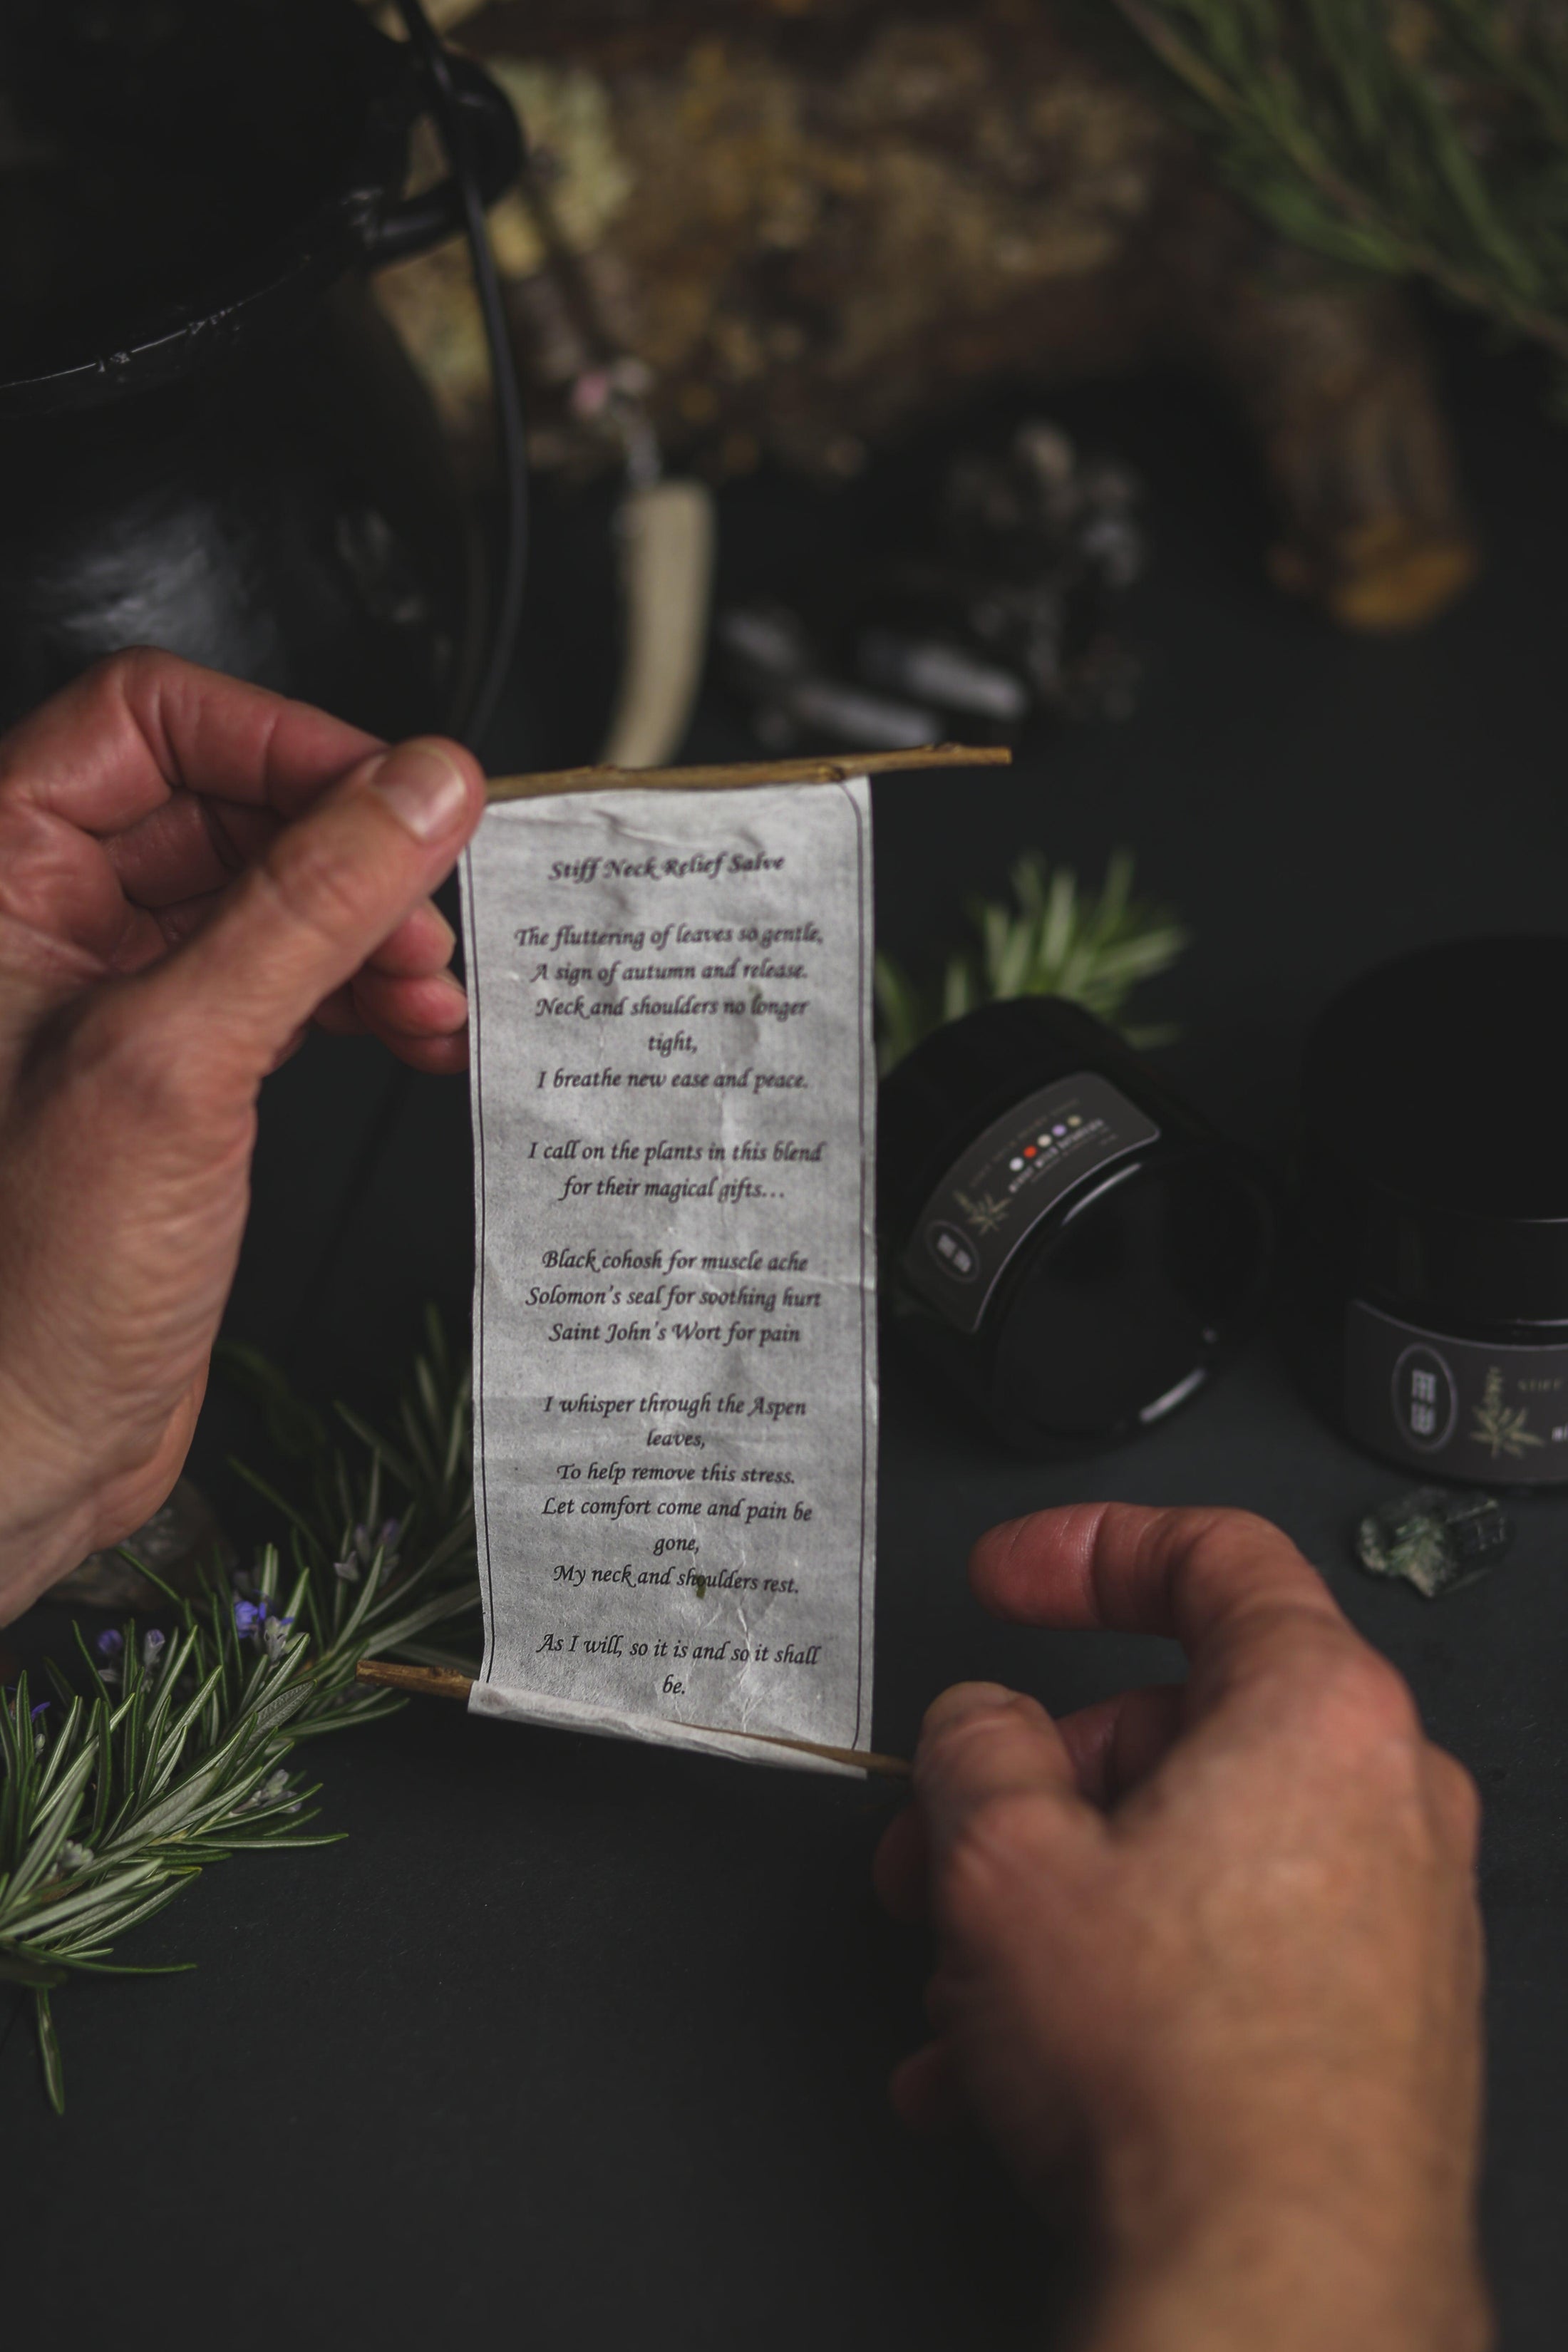 Stiff Neck Relief Salve
The fluttering of leaves so gentle,
A sign of autumn and release.
Neck and shoulders no longer
tight,
I breathe new ease and peace.
I call on the plants in this blend
for their magical gifts...
Black cohosh for muscle ache
Solomon's seal for soothing hurt
Saint John's Wort for pain
I whisper through the Aspen
leaves,
To help remove this stress.
Let comfort come and pain be
gone,
My neck and shoulders rest.
As I will, so it is and so it shall
be.
STIFF